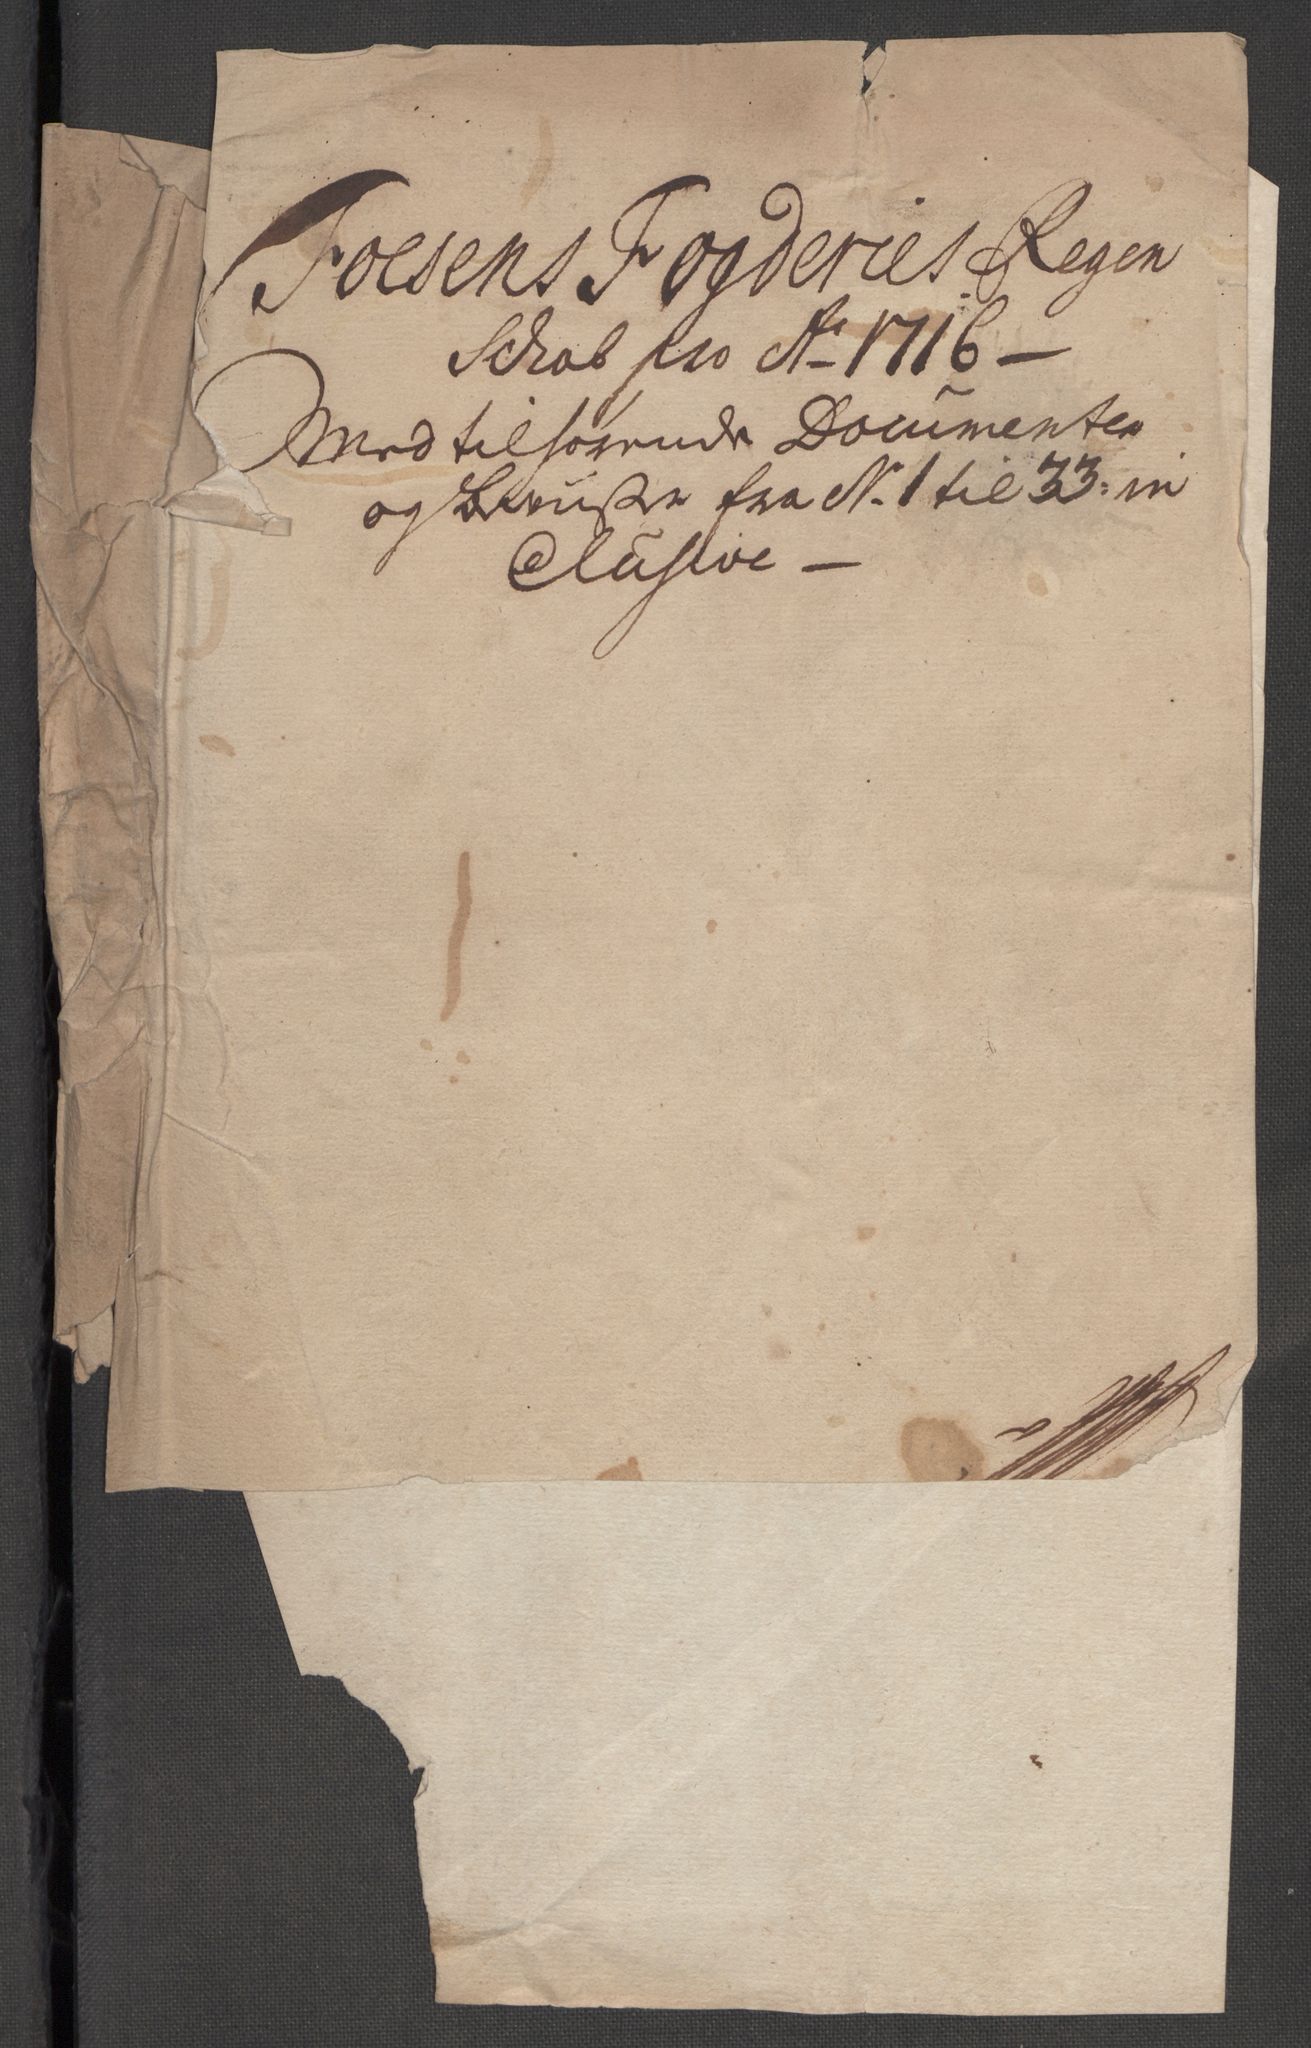 Foesens Fogderies Regen
Schab pro Ao 1716 –
Med tilhørende Documenter
og Beviiser fra No 1 til 33: in
Clusive –